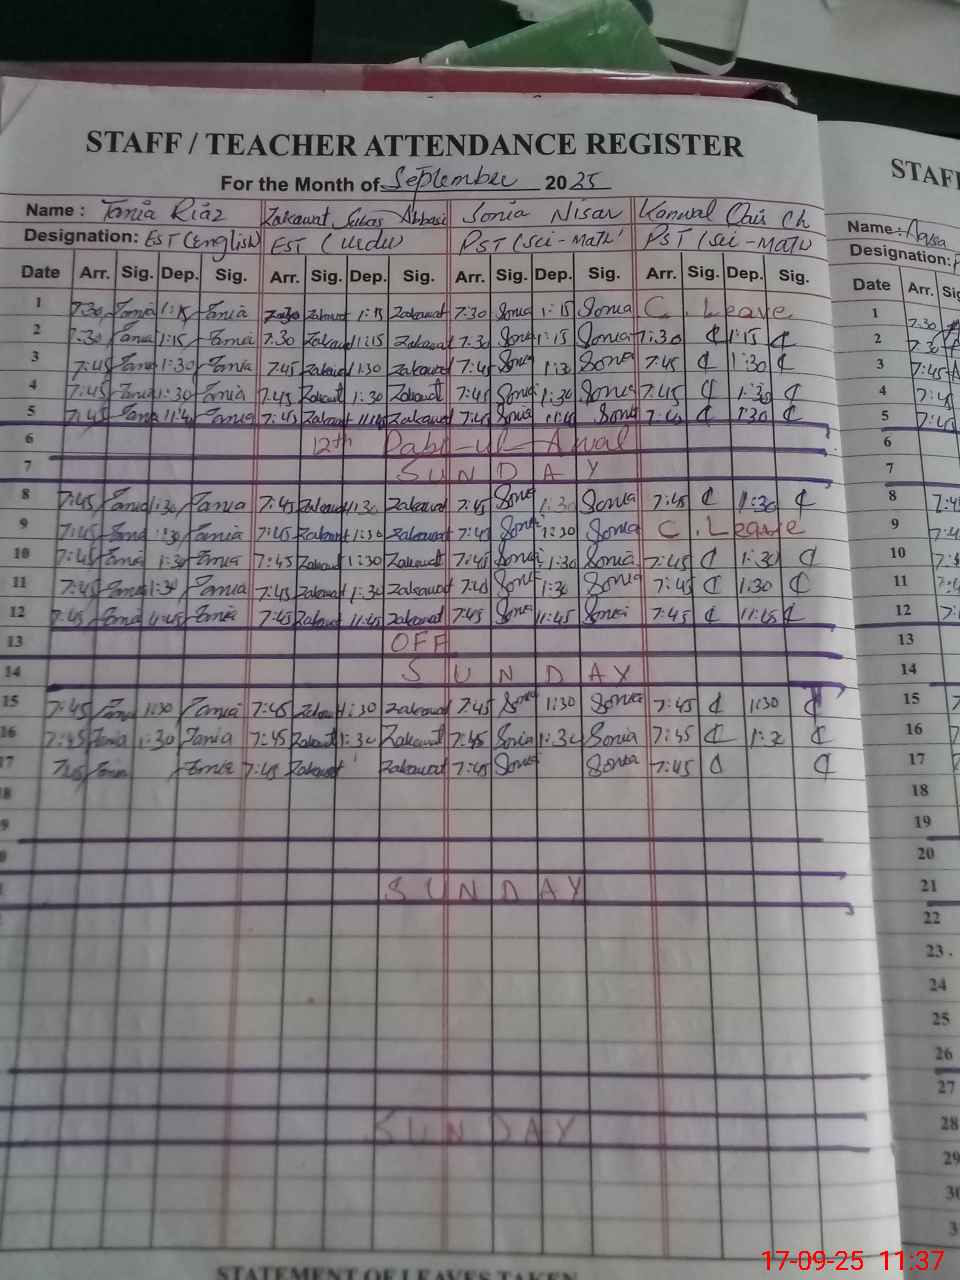 STAFF / TEACHER ATTENDANCE REGISTER
For the Month of September 2025
Name : Tania Riaz Zakawat Abbasi Sonia Nisar Kanwal Ch
Designation: EST (English) EST (Urdu) PST (Sci-Math) PST (Sci-Math)
Date Arr. Sig. Dep. Sig. Arr. Sig. Dep. Sig. Arr. Sig. Dep. Sig. Arr. Sig. Dep. Sig.
1 7:30 Tania 1:15 Tania 7:30 Zakawat 1:15 Zakawat 7:30 Sonia 1:15 Sonia C. Leave
2 7:30 Tania 1:15 Tania 7:30 Zakawat 1:15 Zakawat 7:30 Sonia 1:15 Sonia 7:30 ₵ 1:15 ₵
3 7:45 Tania 1:30 Tania 7:45 Zakawat 1:30 Zakawat 7:45 Sonia 1:30 Sonia 7:45 ₵ 1:30 ₵
4 7:45 Tania 1:30 Tania 7:45 Zakawat 1:30 Zakawat 7:45 Sonia 1:30 Sonia 7:45 ₵ 1:30 ₵
5 7:45 Tania 11:45 Tania 7:45 Zakawat 11:45 Zakawat 7:45 Sonia Sonia 7:45 ₵ 1:30 ₵
6 12th Rabi-ul-Awal
7 SUNDAY
8 7:45 Tania 1:30 Tania 7:45 Zakawat 1:30 Zakawat 7:45 Sonia 1:30 Sonia 7:45 ₵ 1:30 ₵
9 7:45 Tania 1:30 Tania 7:45 Zakawat 1:30 Zakawat 7:45 Sonia 1:30 Sonia C. Leave
10 7:45 Tania 1:30 Tania 7:45 Zakawat 1:30 Zakawat 7:45 Sonia 1:30 Sonia 7:45 ₵ 1:30 ₵
11 7:45 Tania 1:30 Tania 7:45 Zakawat 1:30 Zakawat 7:45 Sonia 1:30 Sonia 7:45 ₵ 1:30 ₵
12 7:45 Tania 11:45 Tania 7:45 Zakawat 11:45 Zakawat 7:45 Sonia 11:45 Sonia 7:45 ₵ 11:45 ₵
13 OFF
14 SUNDAY
15 7:45 Tania 1:30 Tania 7:45 Zakawat 1:30 Zakawat 7:45 Sonia 1:30 Sonia 7:45 ₵ 1:30 ₵
16 7:45 Tania 1:30 Tania 7:45 Zakawat 1:30 Zakawat 7:45 Sonia 1:30 Sonia 7:45 ₵ 1:30 ₵
17 7:45 Tania Tania 7:45 Zakawat Zakawat 7:45 Sonia Sonia 7:45 ₵ ₵
8
9
SUNDAY
SUNDAY
STATEMENT OF LEAVES TAKEN
STAFF
Name :
Designation:
Date Arr. Sig
1 7:30
2 7:30
3 7:45
4 7:45
5 7:45
6
7
8
9
10
11
12
13
14
15
16
17
18
19
20
21
22
23
24
25
26
27
28
29
17-09-25 11:37